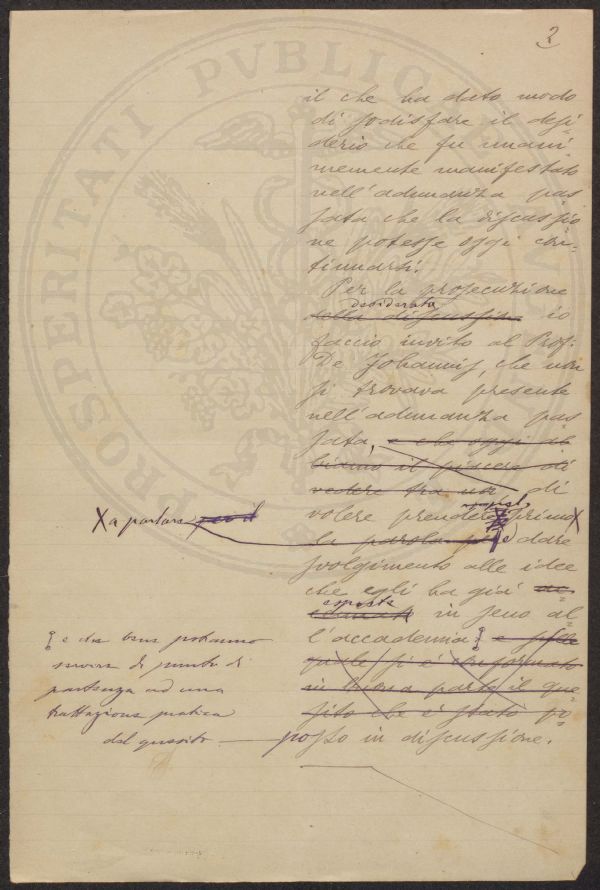 2
PROSPERITATI PUBLICAE
il che ha dato modo
di sodisfare il desi=
derio che fu unani
memente manifestato
nell'adunanza pas
sata che la discussio
ne potesse oggi con=
tinuarsi.
Per la prosecuzione
desiderata
della discussion io
faccio invito al Prof:
De Johannis, che non
si trovava presente
nell'adunanza pas
sata, e che oggi ab
biamo il piacere di
vedere tra noi di
volere prendere primo X
X a parlare per il
la parola e dare
svolgimento alle idee
che egli ha già
esposte
in seno al=
l'accademia e
quale si è conformato
in buona parte il que=
sito che è stato po=
e che bene potranno
servire di punto di
partenza ad una
trattazione pratica
del quesito posto in discussione.